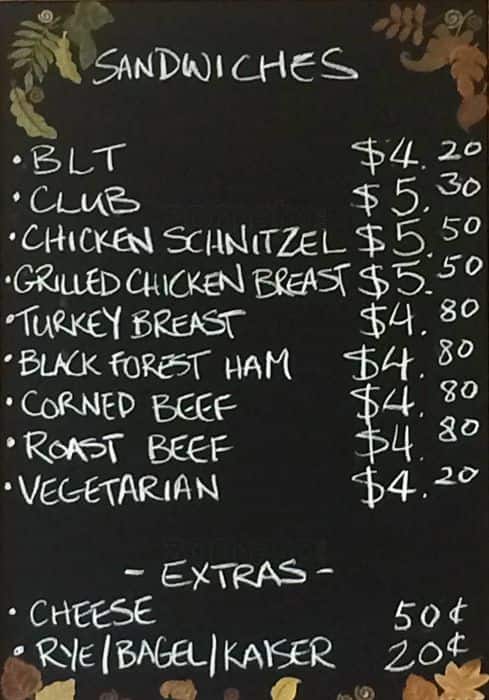 SANDWICHES
• BLT $4.20
• CLUB $5.30
• CHICKEN SCHNITZEL $5.50
• GRILLED CHICKEN BREAST $5.50
• TURKEY BREAST $4.80
• BLACK FOREST HAM $4.80
• CORNED BEEF $4.80
• ROAST BEEF $4.80
• VEGETARIAN $4.20
- EXTRAS -
• CHEESE 50¢
• RYE/BAGEL/KAISER 20¢